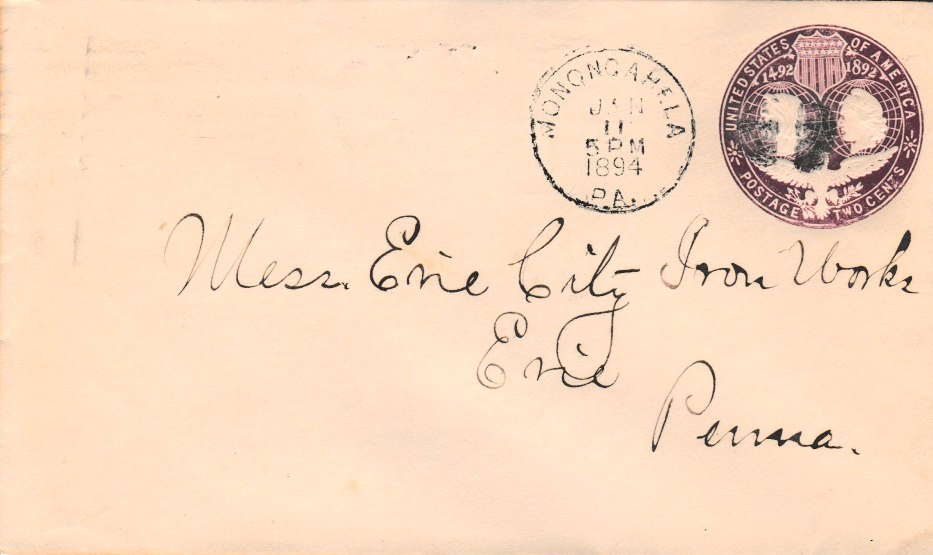 UNITED STATES OF AMERICA.
1492 1892
POSTAGE TWO CENTS
MONONGAHELA
JAN
11
5 PM
1894
PA.
Mess. Erie City Iron Works
Erie
Penna.